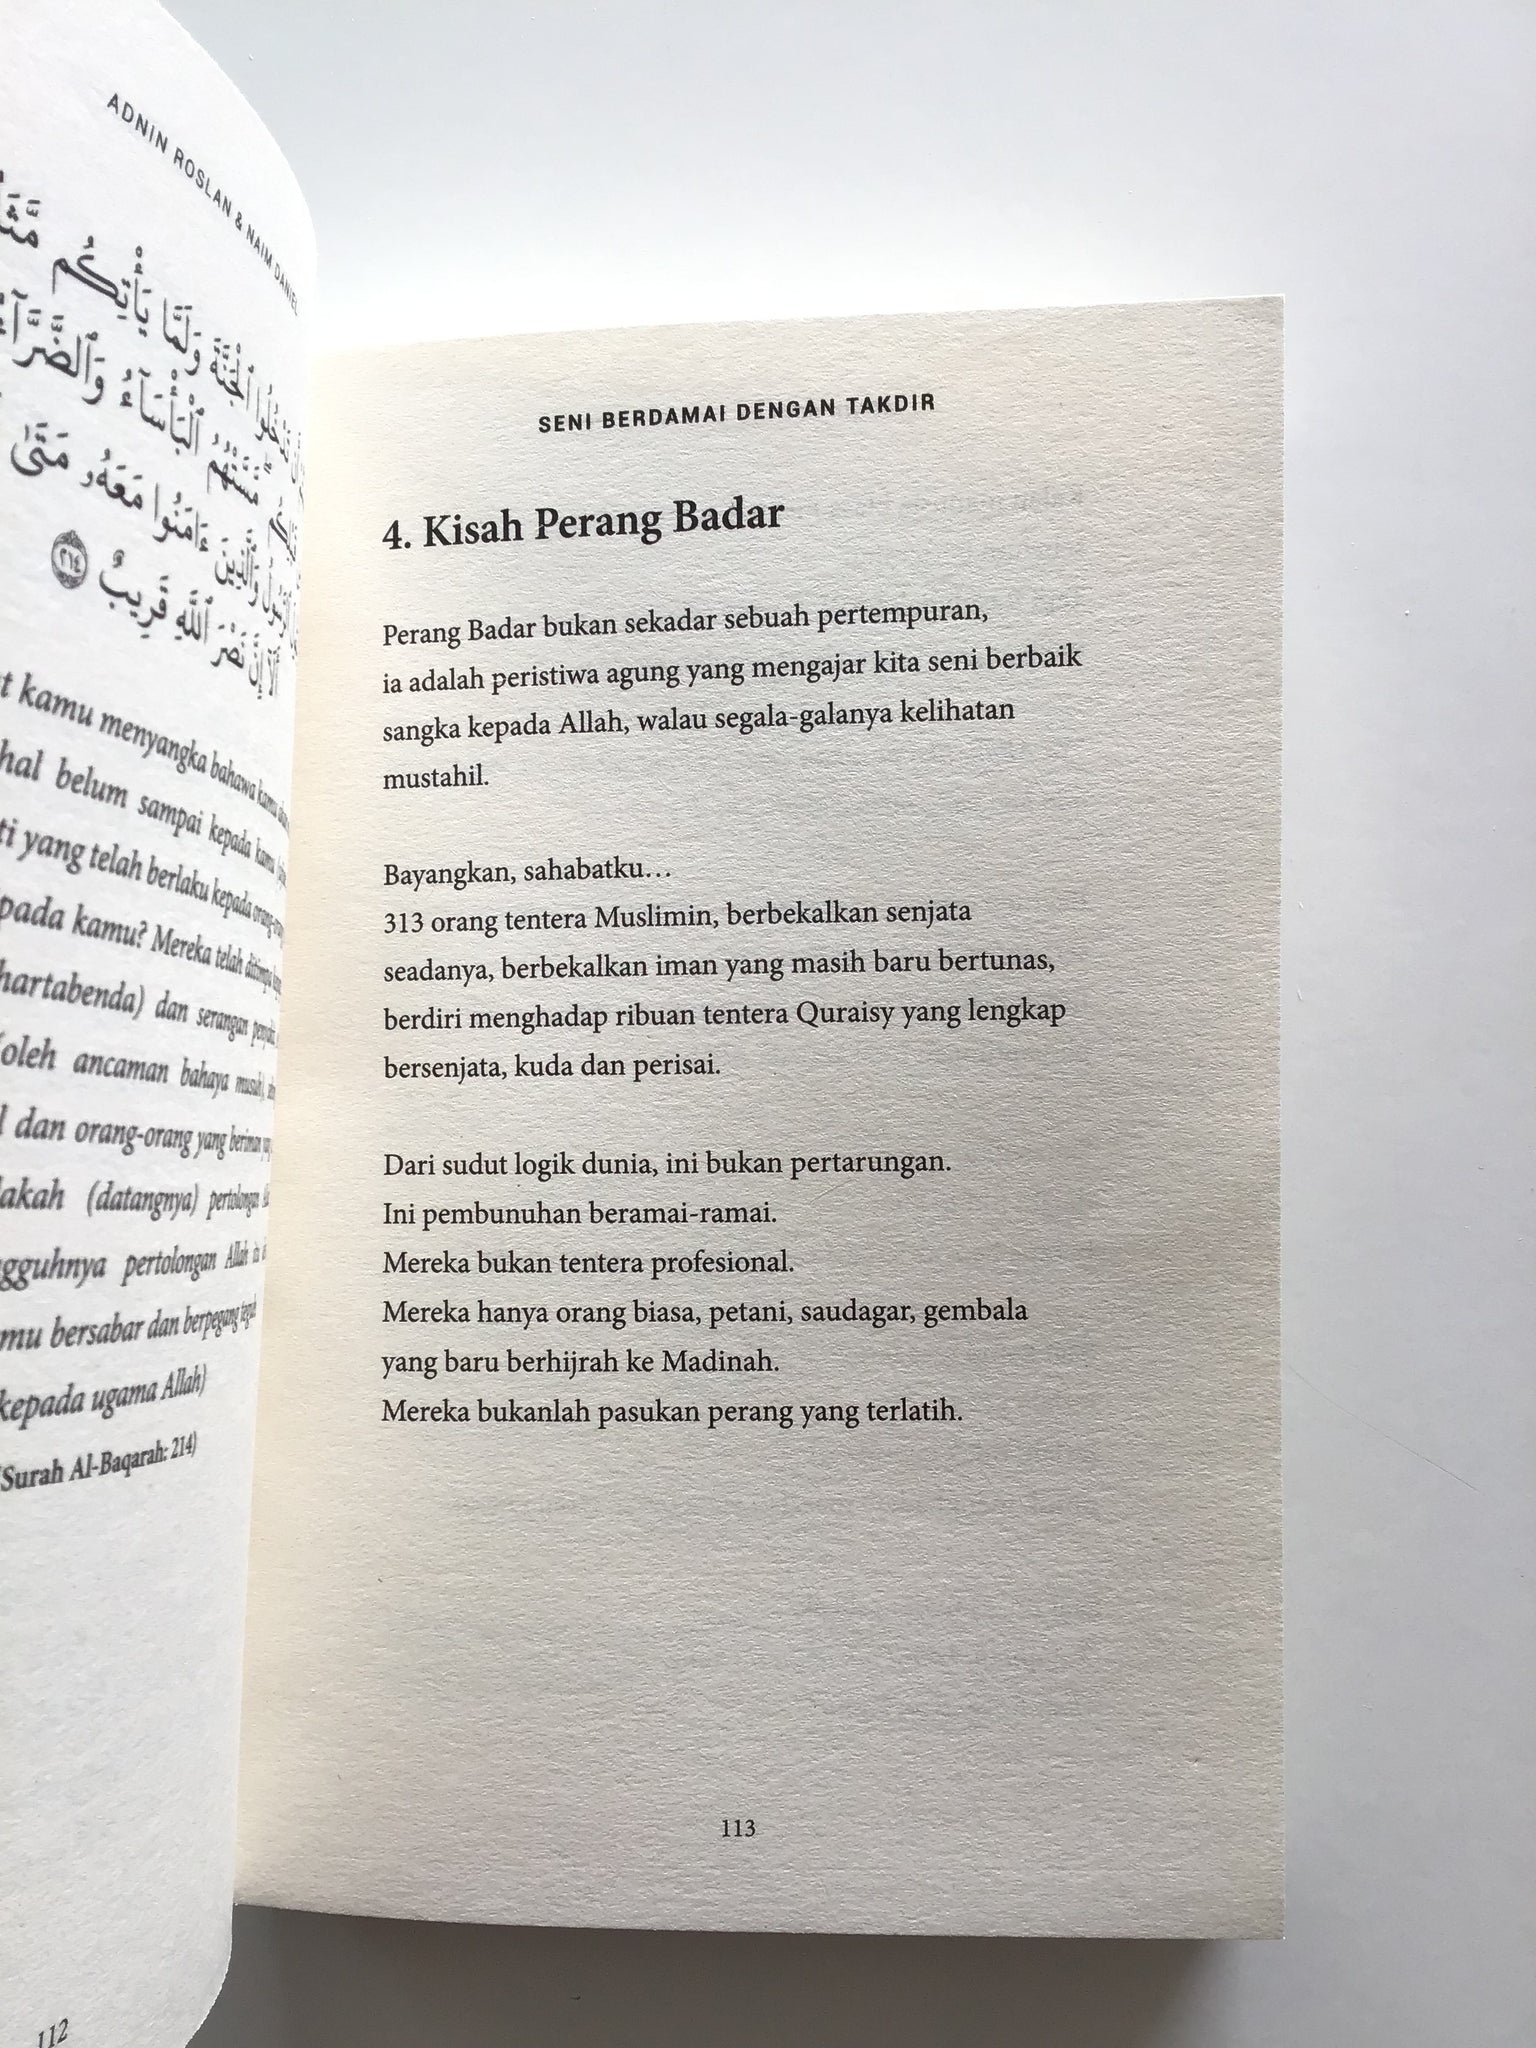 ADNIN ROSLAN & NAIM DANIEL
ٱلْجَنَّةَ وَلَمَّا يَأْتِكُم
ٱلْبَأْسَآءُ وَٱلضَّرَّآءُ
ٱلرَّسُولُ وَٱلَّذِينَ ءَامَنُوا۟ مَعَهُۥ مَتَىٰ
أَلَآ إِنَّ نَصْرَ ٱللَّهِ قَرِيبٌ ٢١٤
kamu menyangka bahawa kamu
belum sampai kepada kamu
yang telah berlaku kepada
kamu? Mereka telah ditimpa
hartabenda) dan serangan
oleh ancaman bahaya musuh),
dan orang-orang yang beriman
(datangnya) pertolongan
pertolongan Allah
bersabar dan berpegang teguh
kepada ugama Allah)
(Surah Al-Baqarah: 214)
112
SENI BERDAMAI DENGAN TAKDIR
4. Kisah Perang Badar
Perang Badar bukan sekadar sebuah pertempuran,
ia adalah peristiwa agung yang mengajar kita seni berbaik
sangka kepada Allah, walau segala-galanya kelihatan
mustahil.
Bayangkan, sahabatku…
313 orang tentera Muslimin, berbekalkan senjata
seadanya, berbekalkan iman yang masih baru bertunas,
berdiri menghadap ribuan tentera Quraisy yang lengkap
bersenjata, kuda dan perisai.
Dari sudut logik dunia, ini bukan pertarungan.
Ini pembunuhan beramai-ramai.
Mereka bukan tentera profesional.
Mereka hanya orang biasa, petani, saudagar, gembala
yang baru berhijrah ke Madinah.
Mereka bukanlah pasukan perang yang terlatih.
113